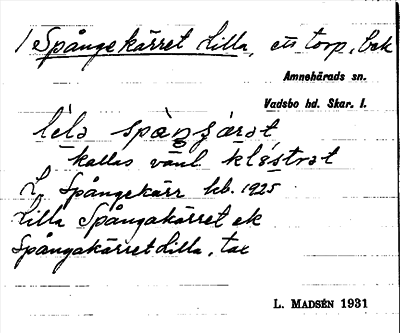 / Spångekärret Lilla, ett torp, bek
Amnehärads sn.
Vadsbo hd. Skar. l.
lɩ́la spàŋɡ̧árət
kallas vanl. klǿstrət
L. Spångekärr hb. 1925
Lilla Spångakärret ek
Spångakärret Lilla, tax
L. MADSÉN 1931